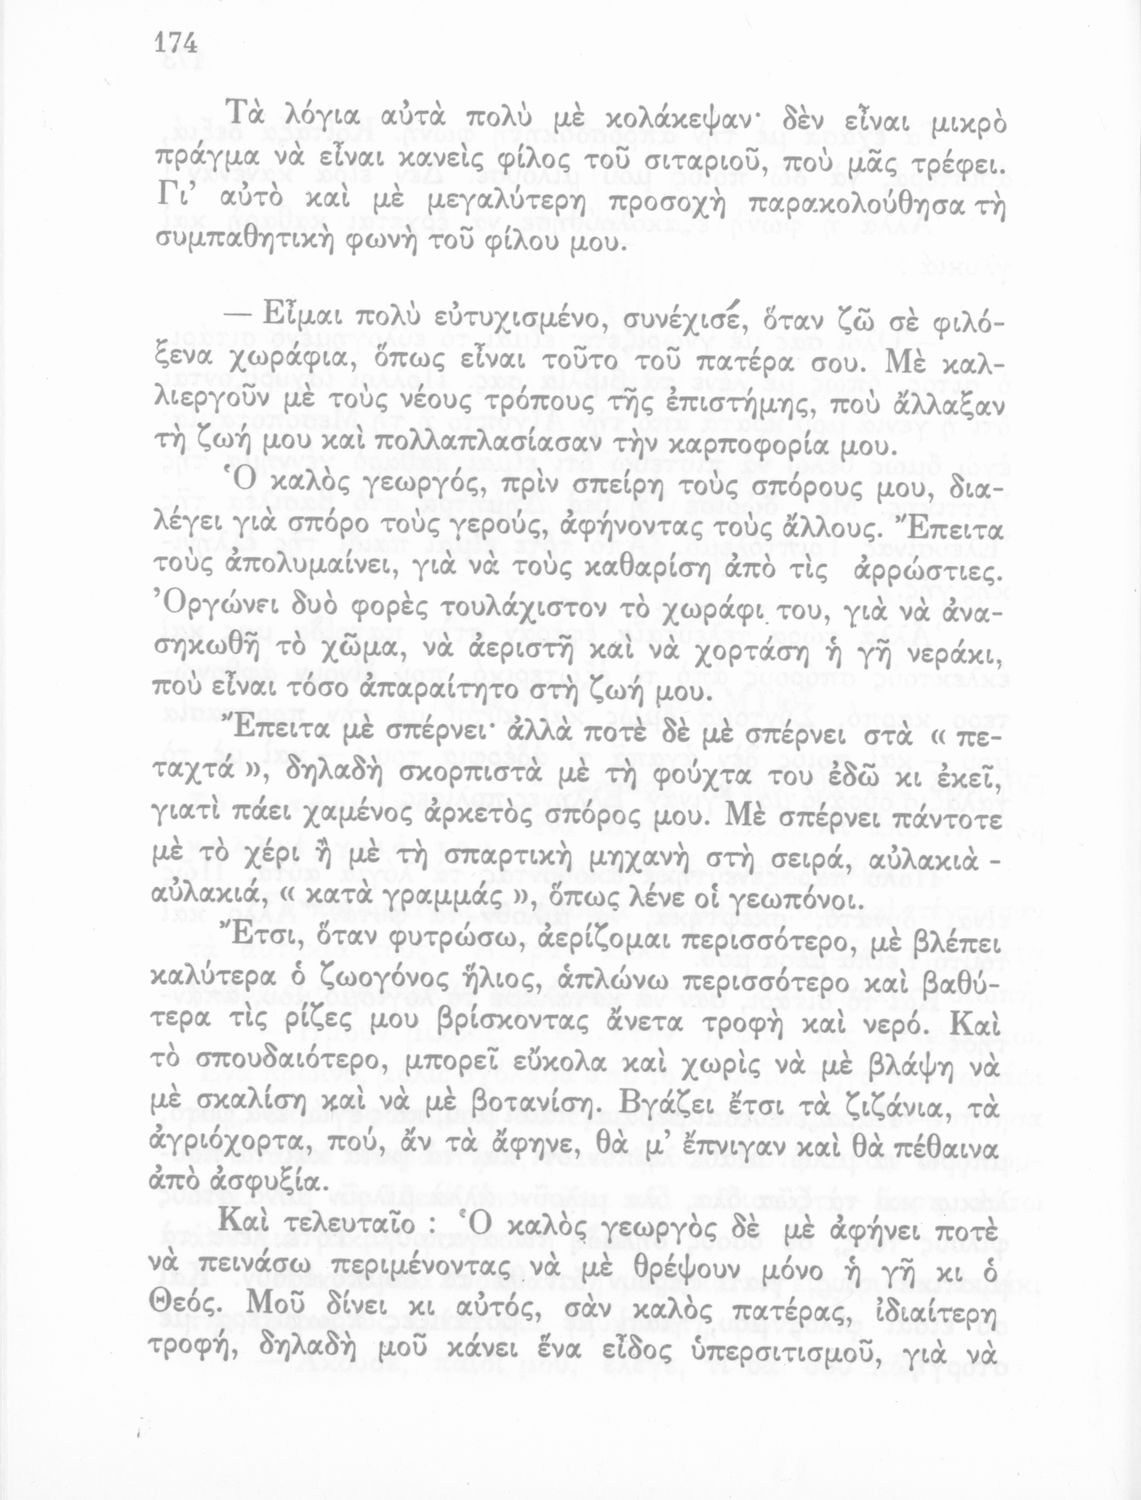 174
Τὰ λόγια αὐτὰ πολὺ μὲ κολάκεψαν· δὲν εἶναι μικρὸ
πράγμα νὰ εἶναι κανεὶς φίλος τοῦ σιταριοῦ, ποὺ μᾶς τρέφει.
Γι’ αὐτὸ καὶ μὲ μεγαλύτερη προσοχὴ παρακολούθησα τὴ
συμπαθητικὴ φωνὴ τοῦ φίλου μου.
— Εἶμαι πολὺ εὐτυχισμένο, συνέχισέ, ὅταν ζῶ σὲ φιλό-
ξενα χωράφια, ὅπως εἶναι τοῦτο τοῦ πατέρα σου. Μὲ καλ-
λιεργοῦν μὲ τοὺς νέους τρόπους τῆς ἐπιστήμης, ποὺ ἄλλαξαν
τὴ ζωή μου καὶ πολλαπλασίασαν τὴν καρποφορία μου.
Ὁ καλὸς γεωργός, πρὶν σπείρη τοὺς σπόρους μου, δια-
λέγει γιὰ σπόρο τοὺς γερούς, ἀφήνοντας τοὺς ἄλλους. Ἔπειτα
τοὺς ἀπολυμαίνει, γιὰ νὰ τοὺς καθαρίση ἀπὸ τὶς ἀρρώστιες.
Ὀργώνει δυὸ φορὲς τουλάχιστον τὸ χωράφι του, γιὰ νὰ ἀνα-
σηκωθῆ τὸ χῶμα, νὰ ἀεριστῆ καὶ νὰ χορτάση ἡ γῆ νεράκι,
ποὺ εἶναι τόσο ἀπαραίτητο στὴ ζωή μου.
Ἔπειτα μὲ σπέρνει· ἀλλὰ ποτὲ δὲ μὲ σπέρνει στὰ « πε-
ταχτά », δηλαδὴ σκορπιστὰ μὲ τὴ φούχτα του ἐδῶ κι ἐκεῖ,
γιατὶ πάει χαμένος ἀρκετὸς σπόρος μου. Μὲ σπέρνει πάντοτε
μὲ τὸ χέρι ἢ μὲ τὴ σπαρτικὴ μηχανὴ στὴ σειρά, αὐλακιὰ -
αὐλακιά, « κατὰ γραμμάς », ὅπως λένε οἱ γεωπόνοι.
Ἔτσι, ὅταν φυτρώσω, ἀερίζομαι περισσότερο, μὲ βλέπει
καλύτερα ὁ ζωογόνος ἥλιος, ἁπλώνω περισσότερο καὶ βαθύ-
τερα τὶς ρίζες μου βρίσκοντας ἄνετα τροφὴ καὶ νερό. Καὶ
τὸ σπουδαιότερο, μπορεῖ εὔκολα καὶ χωρὶς νὰ μὲ βλάψη νὰ
μὲ σκαλίση καὶ νὰ μὲ βοτανίση. Βγάζει ἔτσι τὰ ζιζάνια, τὰ
ἀγριόχορτα, πού, ἂν τὰ ἄφηνε, θὰ μ’ ἔπνιγαν καὶ θὰ πέθαινα
ἀπὸ ἀσφυξία.
Καὶ τελευταῖο : Ὁ καλὸς γεωργὸς δὲ μὲ ἀφήνει ποτὲ
νὰ πεινάσω περιμένοντας νὰ μὲ θρέψουν μόνο ἡ γῆ κι ὁ
Θεός. Μοῦ δίνει κι αὐτός, σὰν καλὸς πατέρας, ἰδιαίτερη
τροφή, δηλαδὴ μοῦ κάνει ἕνα εἶδος ὑπερσιτισμοῦ, γιὰ νὰ